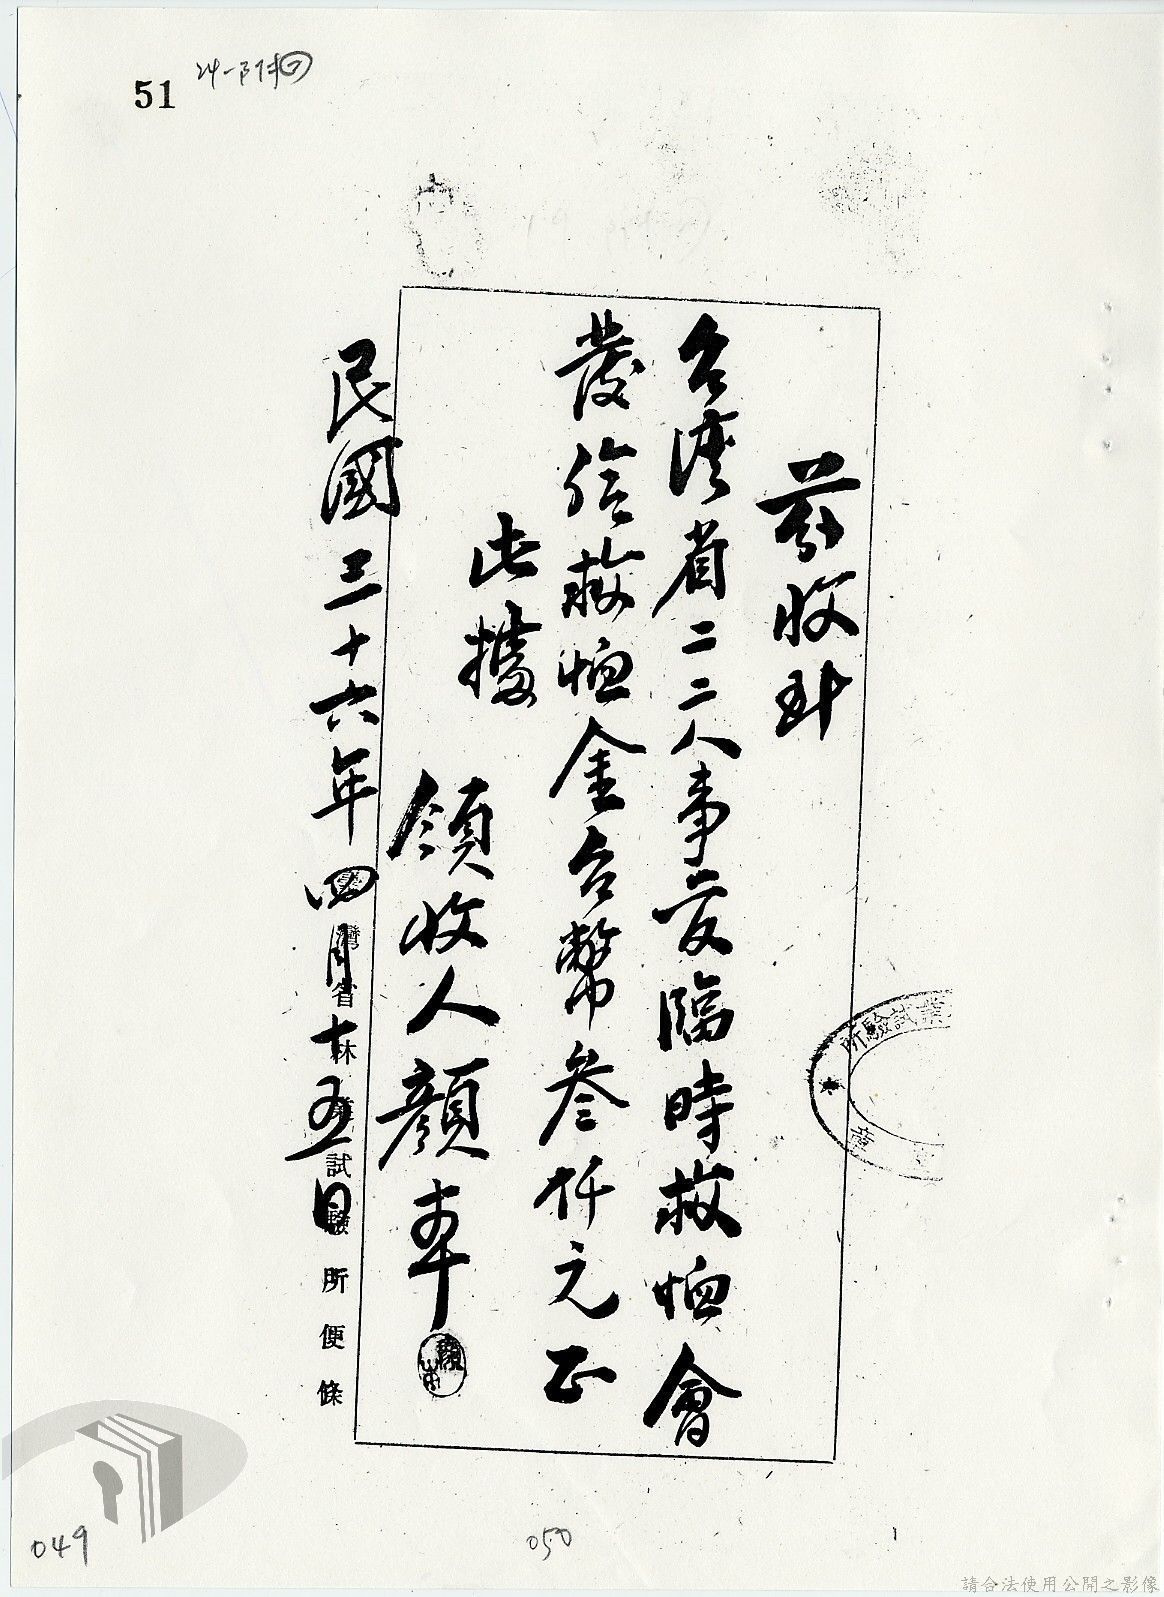 51
24-附件②
茲收到
台湾省二二八事変臨時救恤會
發給救恤金台幣叁仟元正
此據
領收人顏本
民國三十六年四月十五日
灣省林業試驗所便條
業試驗所
章
049
050
請合法使用公開之影像